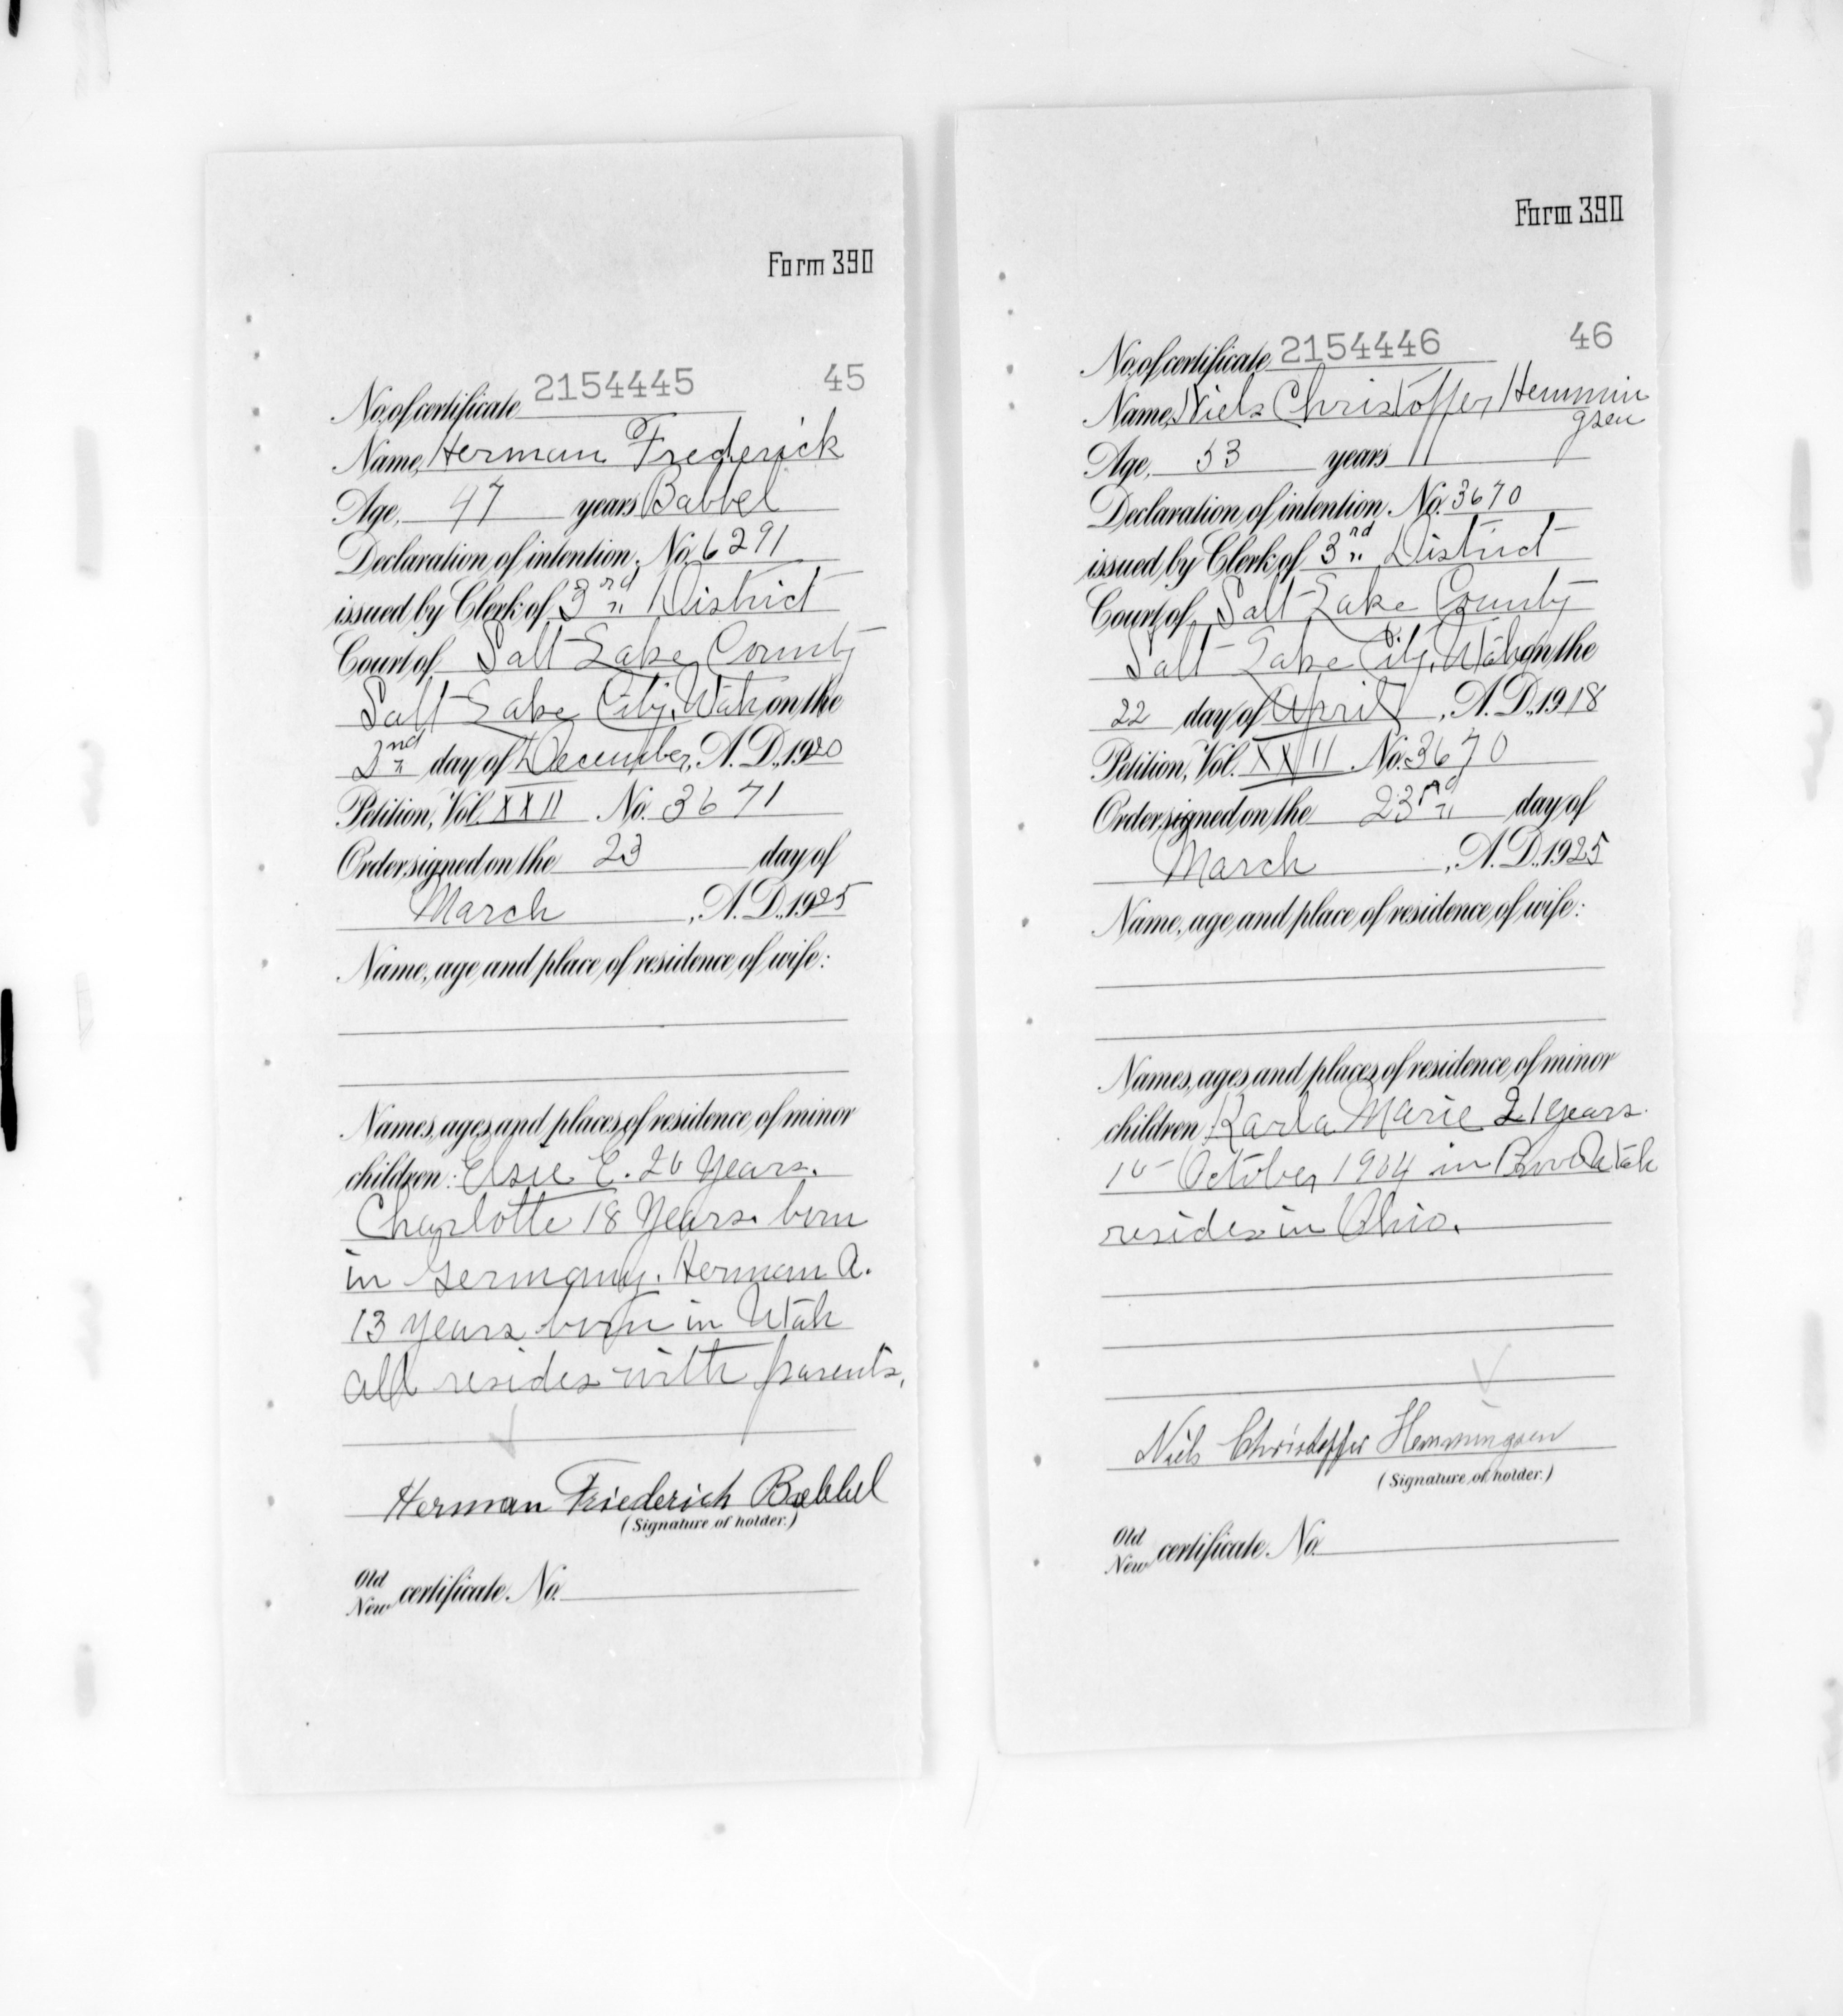 Form 390
No. of certificate 2154445 45
Name, Herman Frederick
Age, 47 years Babbel
Declaration of intention, No. 6291
issued by Clerk of 3rd District
Court of Salt Lake County
Salt Lake City, Utah on the
2nd day of December, A. D., 1920
Petition, Vol. XXII No. 3671
Order signed on the 23 day of
March, A. D., 1925
Name, age and place of residence of wife:
Names, ages and places of residence of minor
children: Elsie E. 20 years.
Charlotte 18 years. born
in Germany. Herman A.
13 years born in Utah
all resides with parents.
Herman Friederich Babbel
(Signature of holder.)
Old
New certificate No.
Form 390
No. of certificate 2154446 46
Name, Niels Christoffer Hemmin
gsen
Age, 53 years
Declaration of intention, No. 3670
issued by Clerk of 3rd District
Court of Salt Lake County
Salt Lake City, Utah on the
22 day of April, A. D., 1918
Petition, Vol. XXII No. 3670
Order signed on the 23rd day of
March, A. D., 1925
Name, age and place of residence of wife:
Names, ages and places of residence of minor
children Karla Marie 21 years.
October, 1904 in Utah
resides in Ohio.
Niels Christoffer Hemmingsen
(Signature of holder.)
Old
New certificate No.